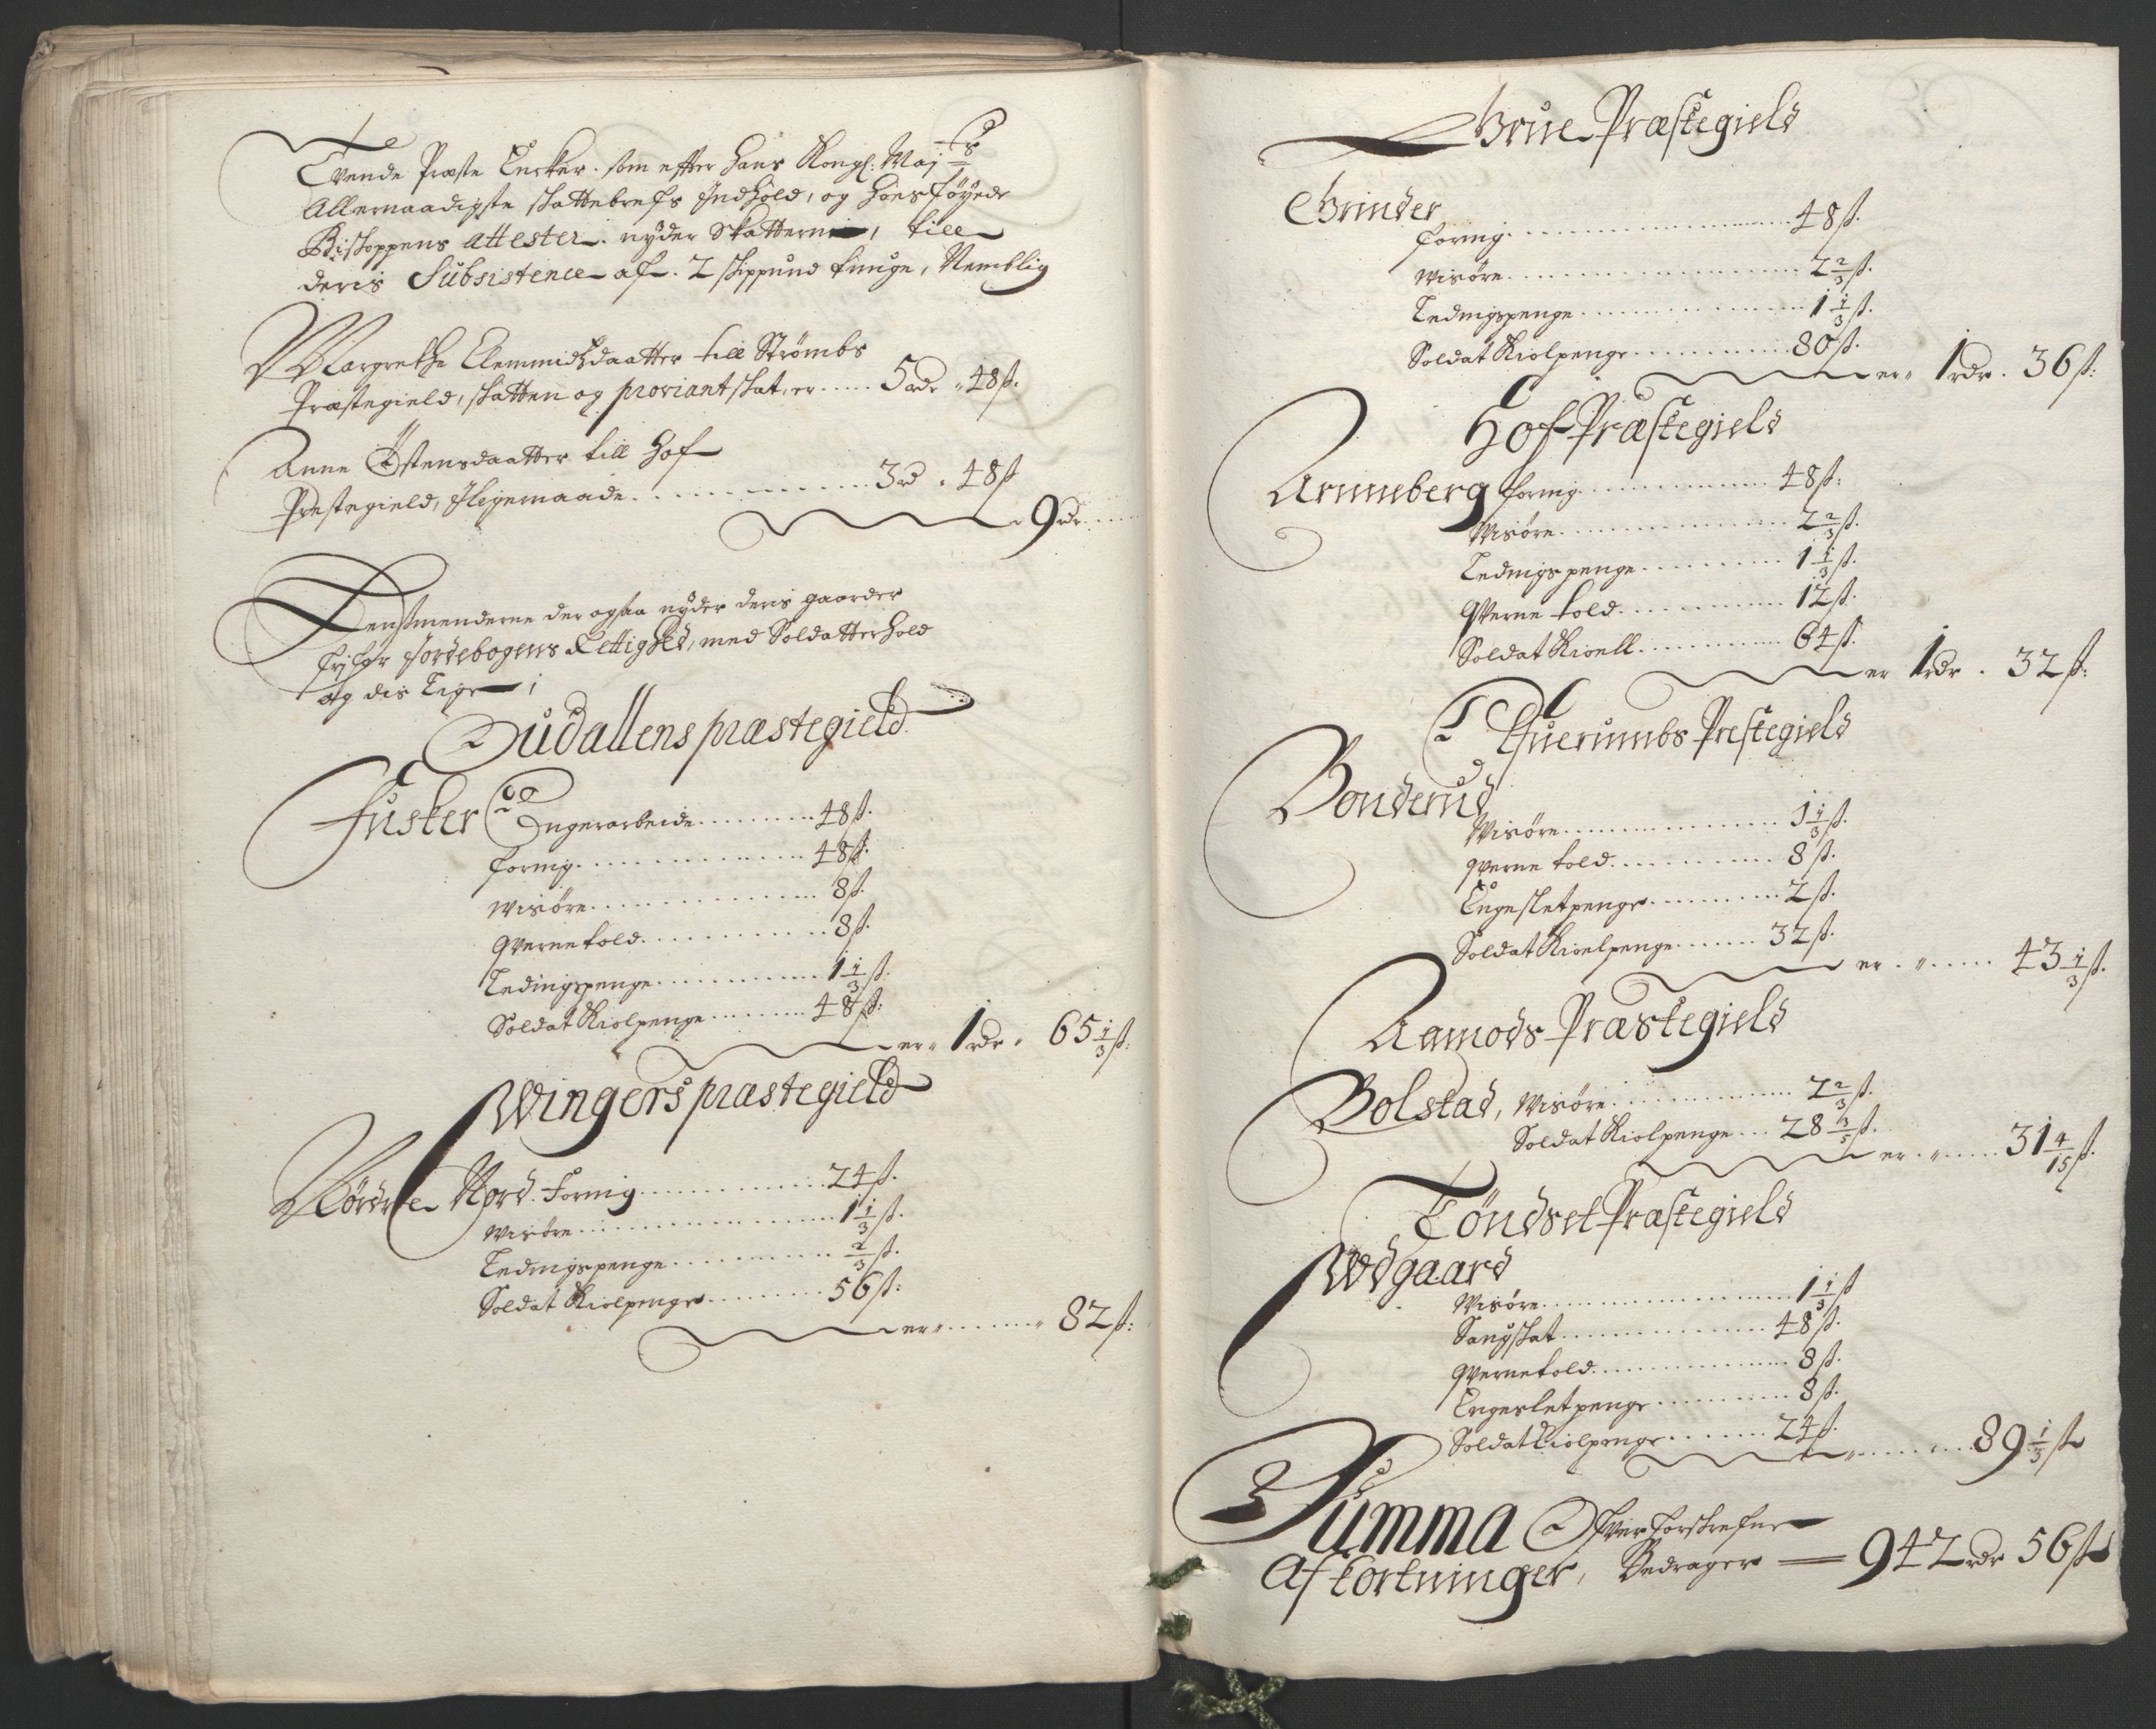 Tvende Præste Encker. som effter Hans Kongl: Maj ts
Allernaadigste skattebrefs Indhold, og hoesføyede
Bishoppens Attester. nyder Skatterne, till
deris Subsistence af. 2 skippund tunge, Nemblig
Margrethe Clemmidsdaatter till Strømbs
Præstegield, skatten og proviant skat, er ..... 5 rdr " 48 ß.
Anne Østensdaatter till Hof
Prestegield, Iligemaade ............ 3 rd " 48 ß
9 rdr
Lensmenderne der ogsaa nyder deris gaarder
frj for Jordebogens Rettighed, med Soldatterhold
og dis lige i
Sudallens præstegield
Fusker Engerarbeide .......... 48 ß.
Foring ............ 48 ß.
Wisøre ............ 8 ß.
Qvernetold ............ 8 ß.
Ledingspenge ............ 1 1/3 ß.
Soldat Kiolpenge .......... 48 ß:
er " 1 rdr " 65 1/3 ß:
Wingers præstegield
Nordre Nord. Foring ............ 24 ß.
Wisøre ............ 1 1/3 ß.
Ledingspenge ............ 2/3 ß.
Soldat Kiolpenge .......... 56 ß:
er " ........ " 82 ß:
Grue Præstegield
Grinder
Foring ............ 48 ß.
Wisøre ............ 2 2/3 ß.
Ledingspenge ............ 1 1/3 ß.
Soldat Kiolpenge ............ 80 ß.
er " 1 rdr. 36 ß:
Hof Præstegield
Arneberg Foring ............ 48 ß:
Wisøre ............ 2 2/3 ß.
Ledingspenge ............ 1 1/3 ß.
Qverne told ............ 12 ß.
Soldat Kioell ............ 64 ß.
er 1 rdr. 32 ß:
Elfuerumbs Prestegield
Bonderud
Wisøre ............ 1 1/3 ß.
Qverne told ............ 8 ß.
Engesletpenge .......... 2 ß.
Soldat Kioelpenge ........ 32 ß.
er . " ..... 43 1/3 ß.
Aamods Præstegield
Bolstad, Wisøre ............ 2 2/3 ß.
Soldat Kiolpenge ... 28 3/5 ß.
er . " ..... 31 4/15 ß.
Tøndset Præstegield
Wdgaard
Wisøre ............ 1 1/3 ß
Saugskat ............ 48 ß.
Qvernetold ............ 8 ß.
Engesletpenge .......... 8 ß.
Soldat Kiolpenge ........ 24 ß.
" ........ 89 1/3 ß
Summa Ofverforskrefne
Afkortninger, Bedrager — 942 rdr 56 ß